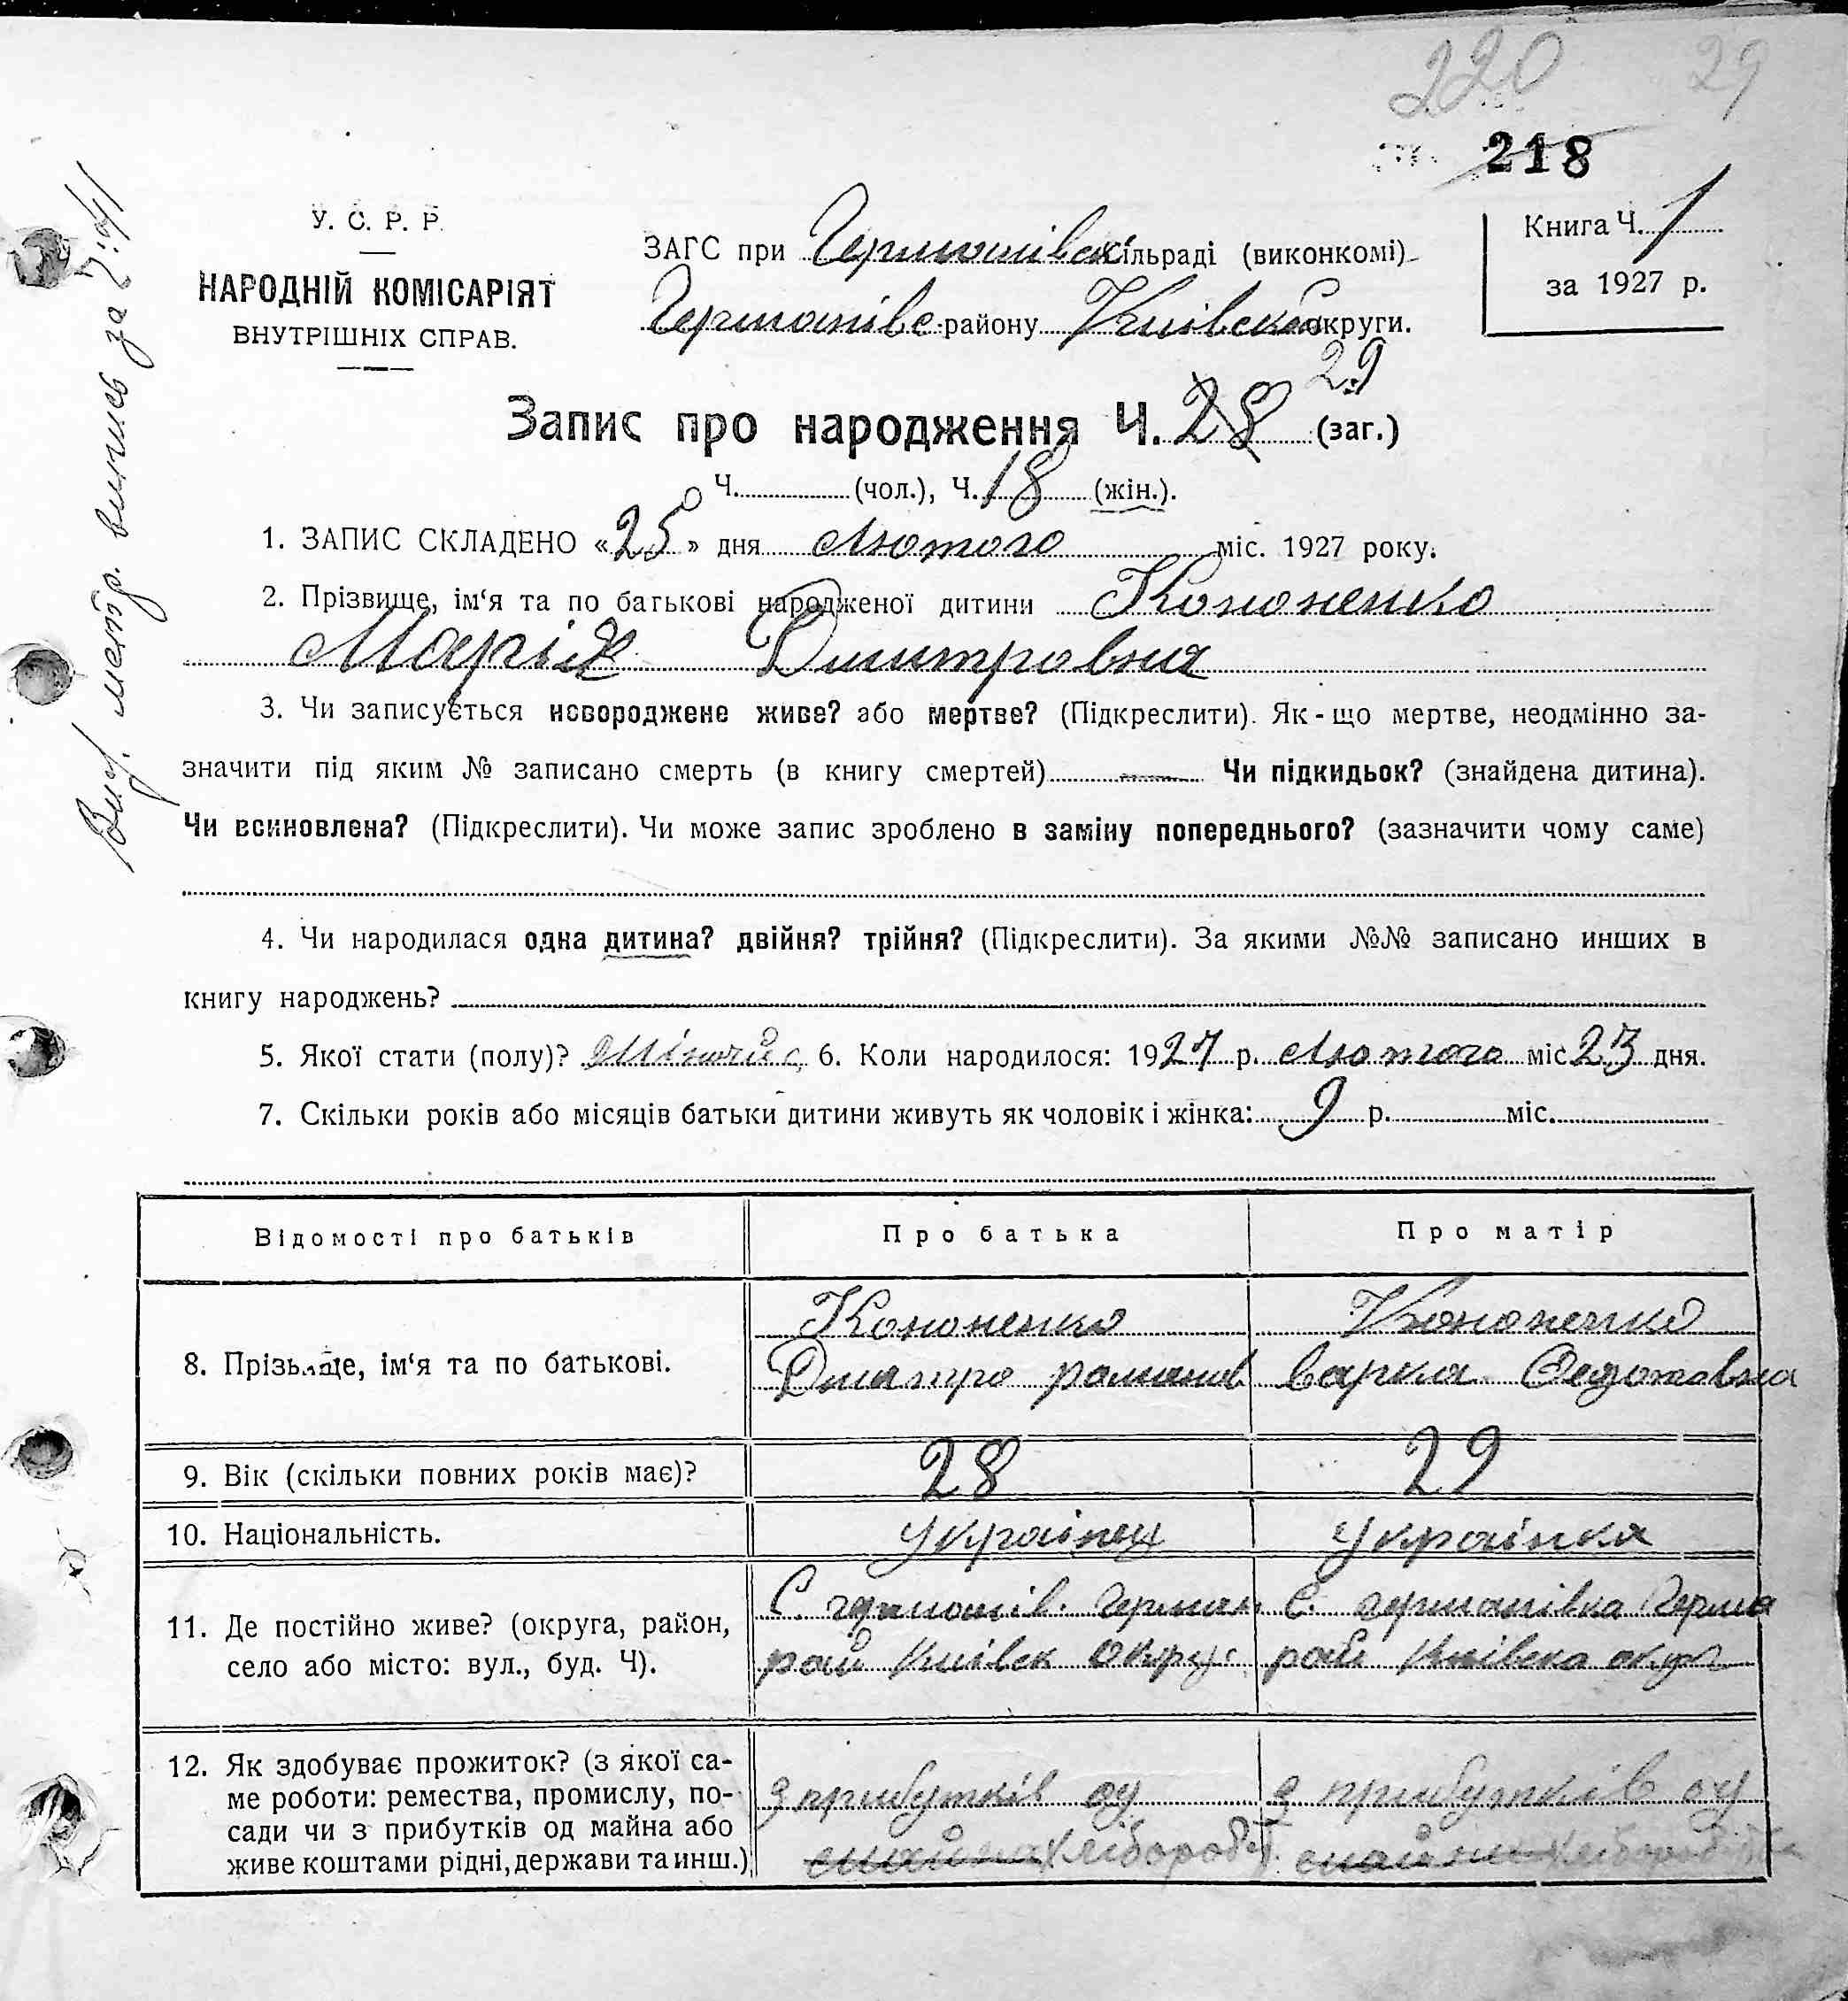 220 29
218
У. С. Р. Р.
НАРОДНІЙ КОМІСАРІЯТ
ВНУТРІШНІХ СПРАВ.
ЗАГС при Германівск сільраді (виконкомі)
Германівс району Київської округи.
Книга Ч. 1
за 1927 р.
29
Запис про народження Ч. 28 (заг.)
Ч. (чол.), Ч. 18 (жін.).
1. ЗАПИС СКЛАДЕНО «25» дня Лютого міс. 1927 року.
2. Прізвище, ім‘я та по батькові народженої дитини Кононенко
Марія Дмитровна
3. Чи записується новороджене живе? або мертве? (Підкреслити). Як-що мертве, неодмінно за-
значити під яким № записано смерть (в книгу смертей) Чи підкидьок? (знайдена дитина).
Чи всиновлена? (Підкреслити). Чи може запис зроблено в заміну попереднього? (зазначити чому саме)
4. Чи народилася одна дитина? двійня? трійня? (Підкреслити). За якими №№ записано инших в
книгу народжень?
5. Якої стати (полу)? 6. Коли народилося: 1927 р. Лютого міс 23 дня.
7. Скільки років або місяців батьки дитини живуть як чоловік і жінка: 9 р. міс.
Відомості про батьків Про батька Про матір
8. Прізвище, ім‘я та по батькові.
Кононенко Кононенко
Дматро романов Варка Федотовна
9. Вік (скільки повних років має)? 28 29
10. Національність. Українец Українка
11. Де постійно живе? (округа, район,
село або місто: вул., буд. Ч).
С. германів. Герман С. германівка Герма
рай Київск Округ рай Київска округ
12. Як здобуває прожиток? (з якої са-
ме роботи: ремества, промислу, по-
сади чи з прибутків од майна або
живе коштами рідні, держави та инш.)
З прибутків од З прибутків од
майна хлібороб майна
Вид. метр. випись за 2:41